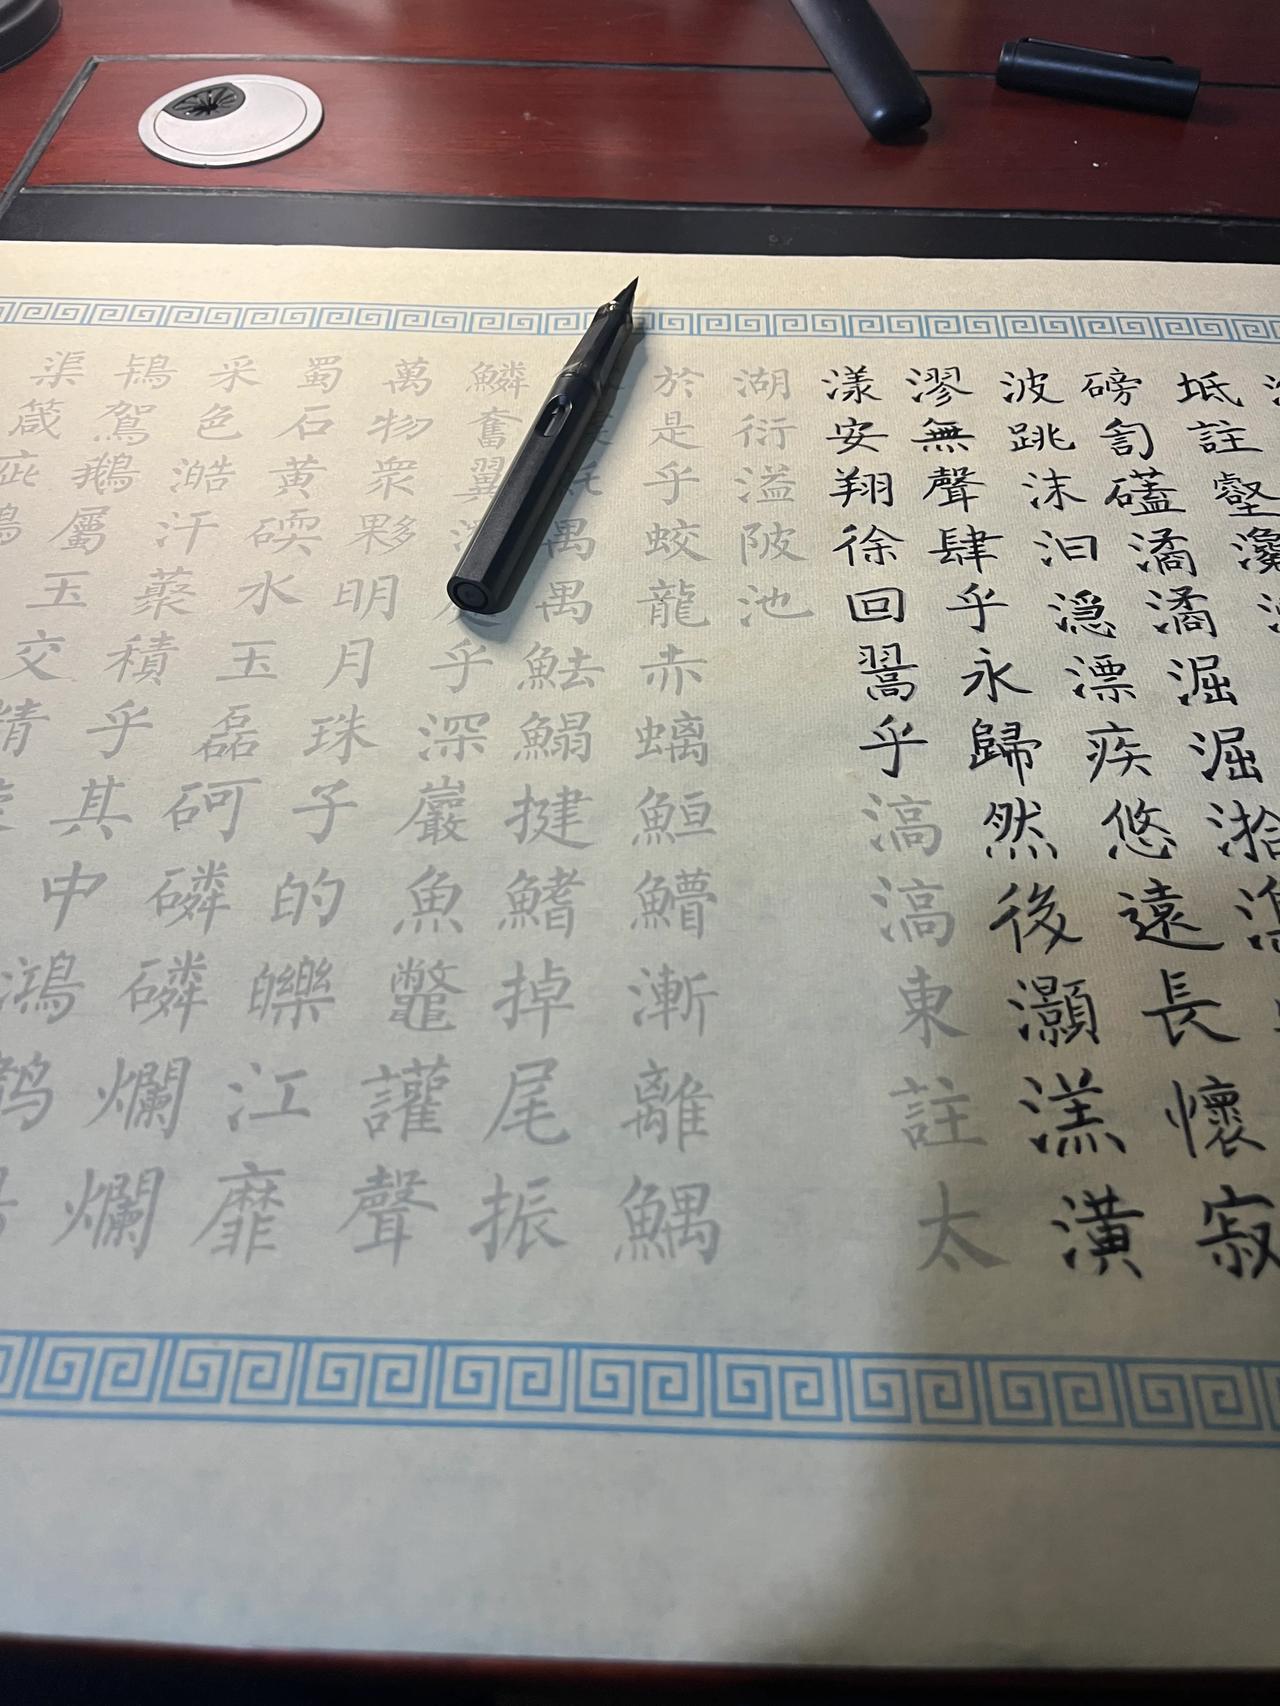 坻註壑瀺
磅訇礚潏潏淈淈湁
波跳沫汩㴔漂疾悠遠長懷寂
漻無聲肆乎永歸然後灝溔潢
漾安翔徐回翯乎滈滈東註太
湖衍溢陂池
於是乎蛟龍赤螭䱭䲛漸離鰅
禺禺魼鰨揵鰭掉尾振
鱗奮翼乎深巖魚鱉讙聲
萬物衆夥明月珠子的皪江靡
蜀石黃碝水玉磊砢磷磷爛爛
采色澔汗藂積乎其中鴻鷫
鴇駕鵝屬玉交精
渠箴疵